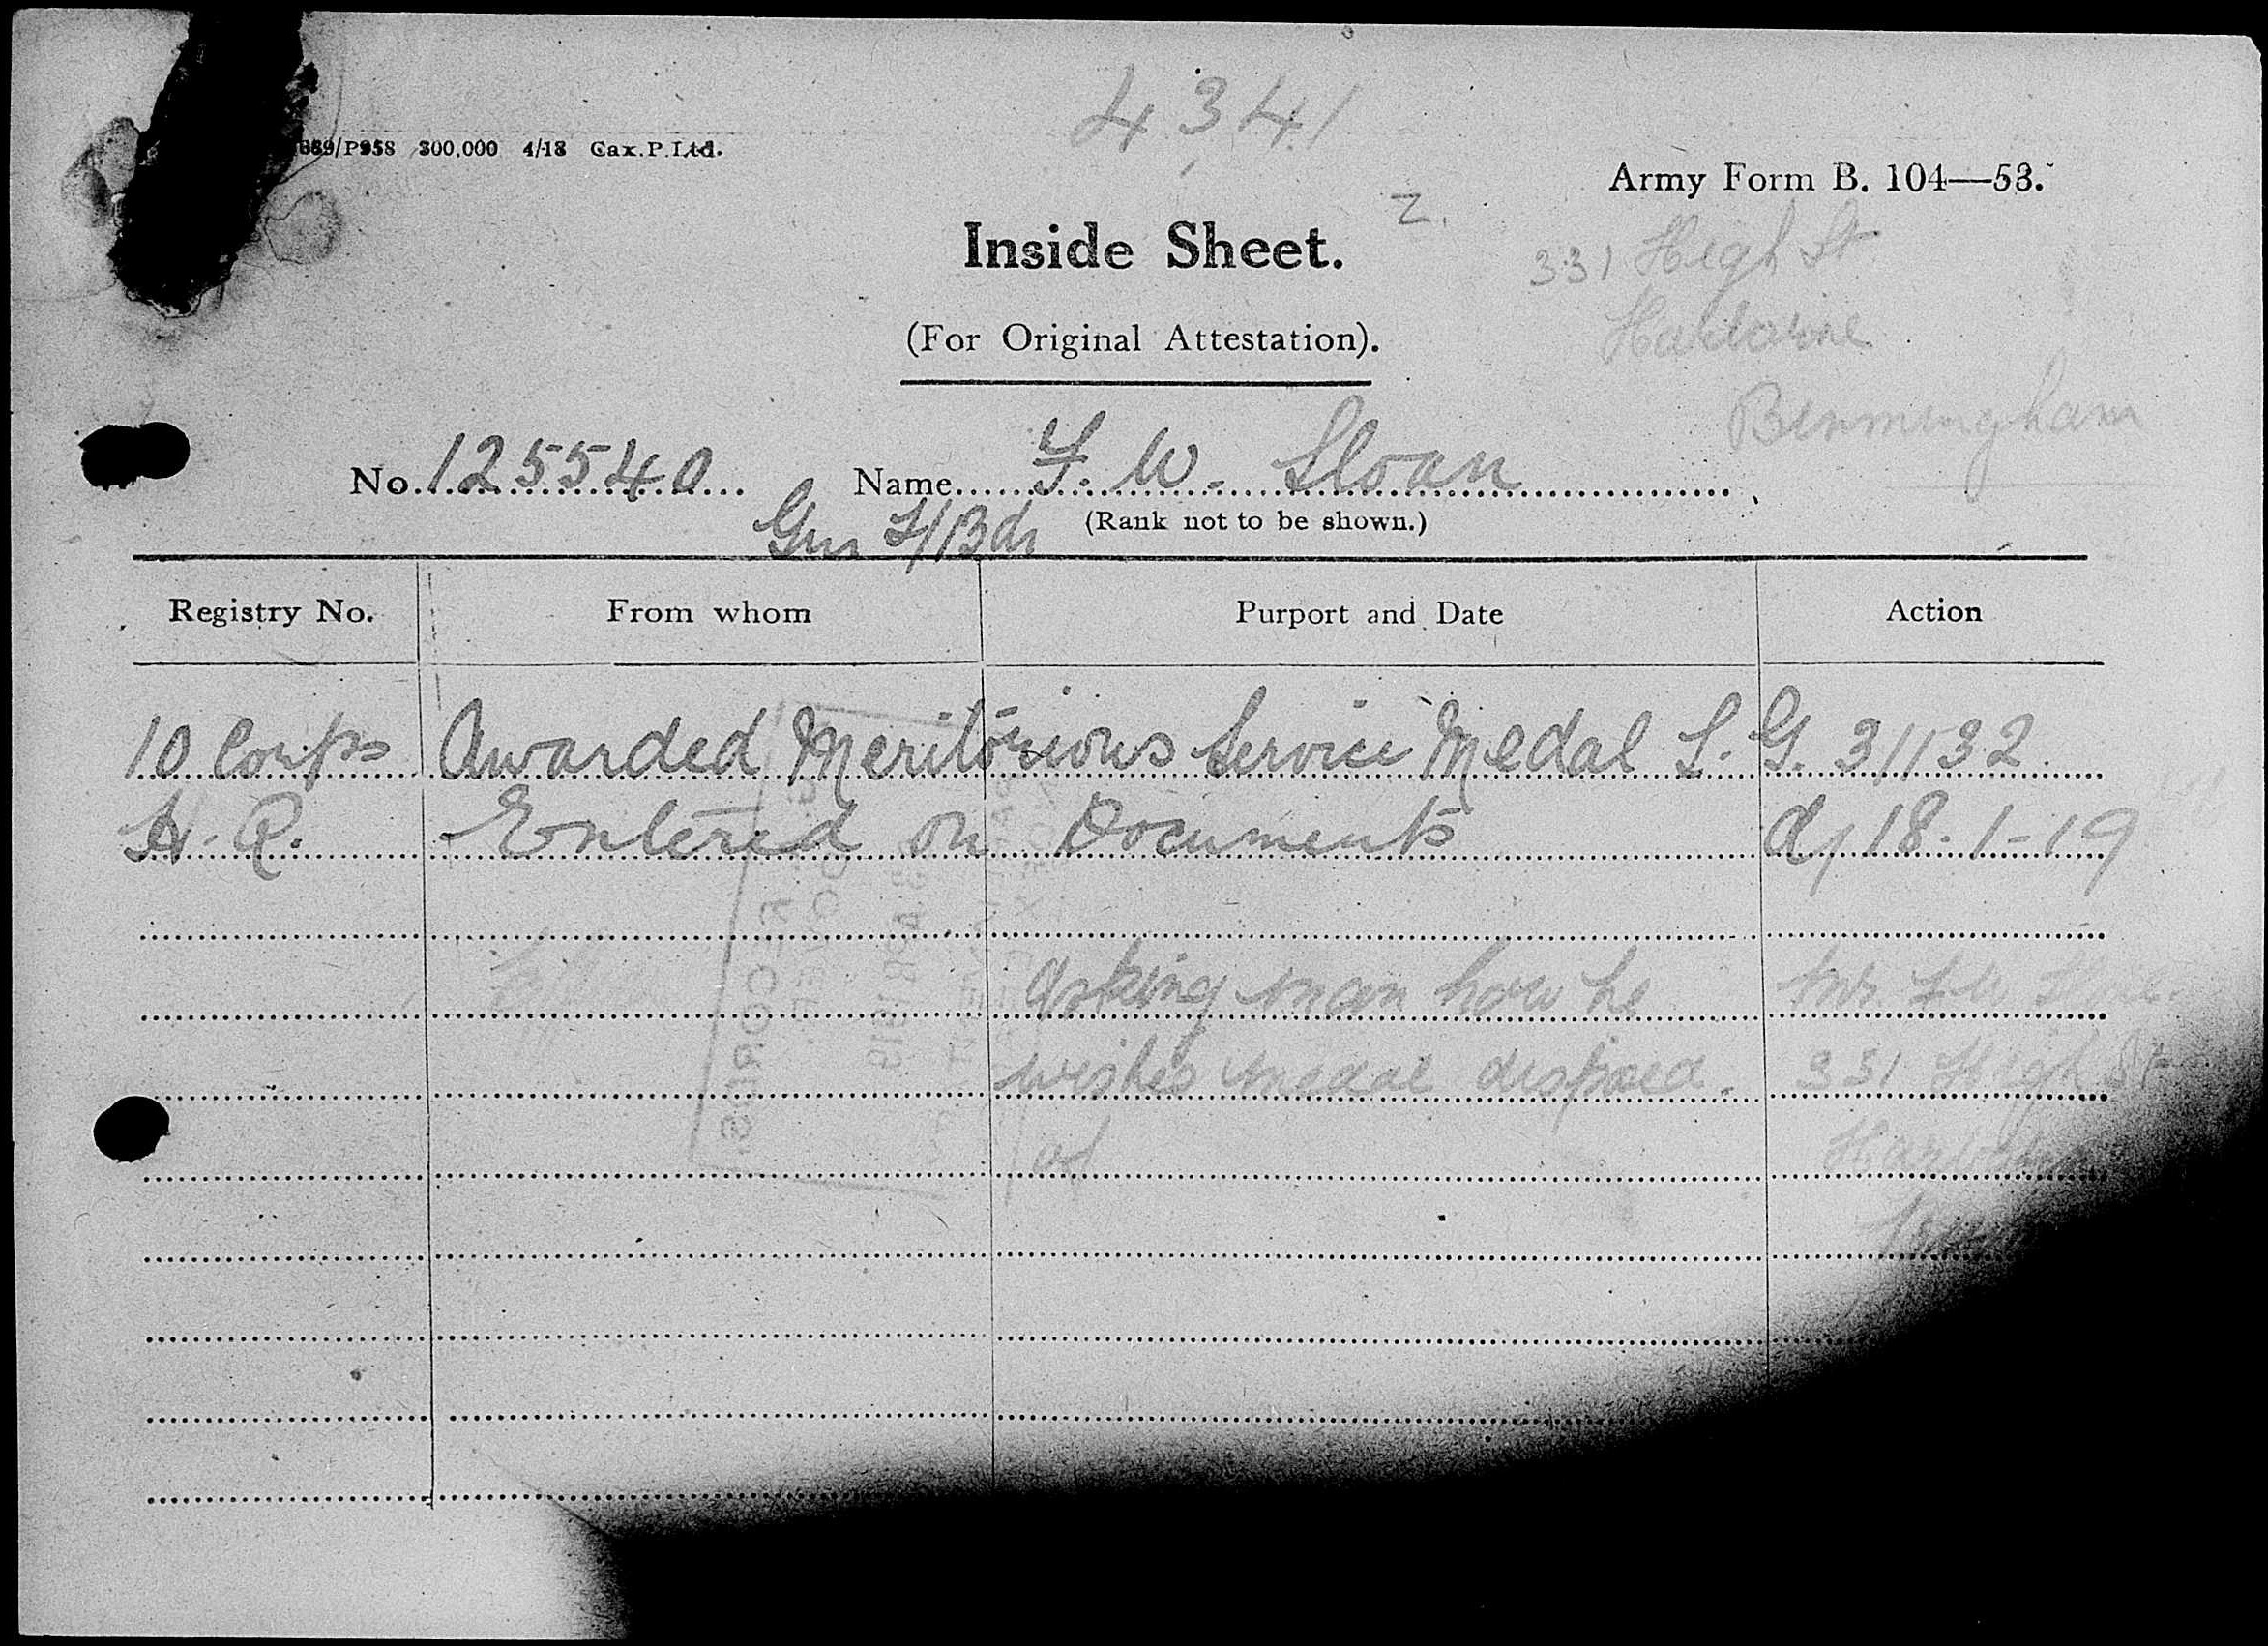 4341
889/P958 300,000 4/18 Cax.P.Ltd.
Army Form B. 104—53.
Z.
Inside Sheet.
331 High St
Harborne
(For Original Attestation).
Birmingham
No. 125540 Name F. W. Sloan
Gnr A/Bdr (Rank not to be shown.)
Registry No. From whom Purport and Date Action
10 Corps Awarded Meritorious Service Medal L.G. 31132
A.R. Entered on Documents d/ 18-1-19
Asking man how he Mr. F W
wishes medal disposed. 331 High St
of Harborne